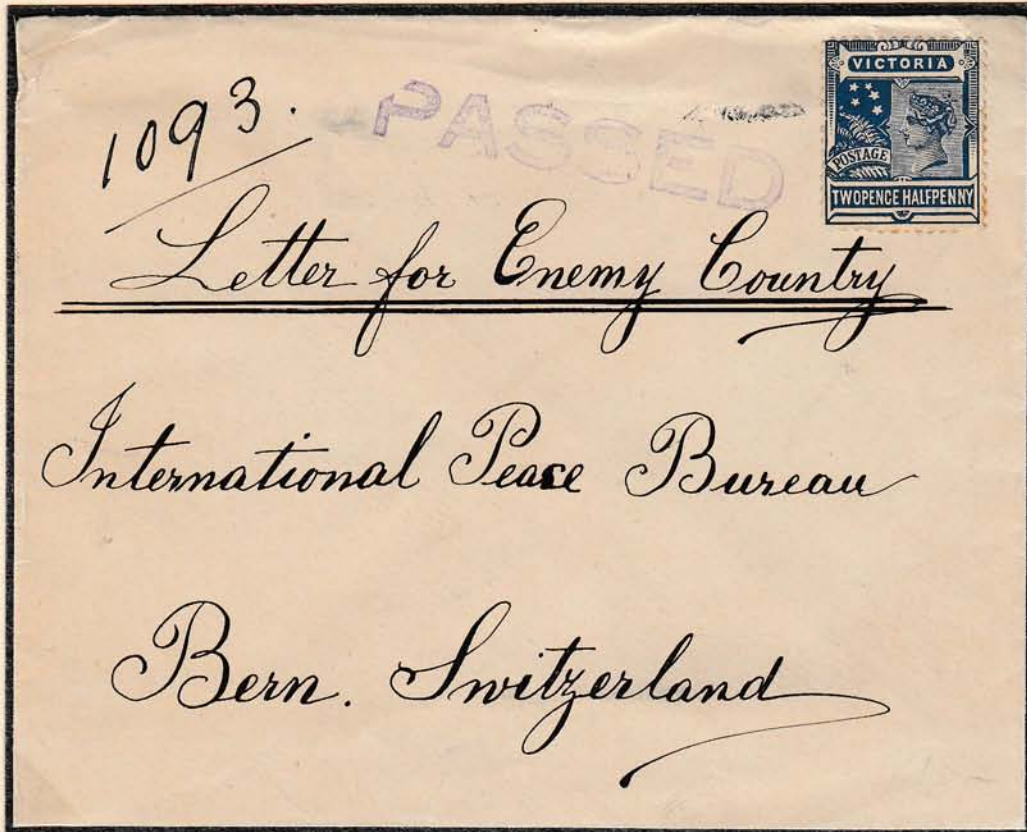 1093.
PASSED
VICTORIA
POSTAGE
TWOPENCE HALFPENNY
Letter for Enemy Country
International Peace Bureau
Bern. Switzerland